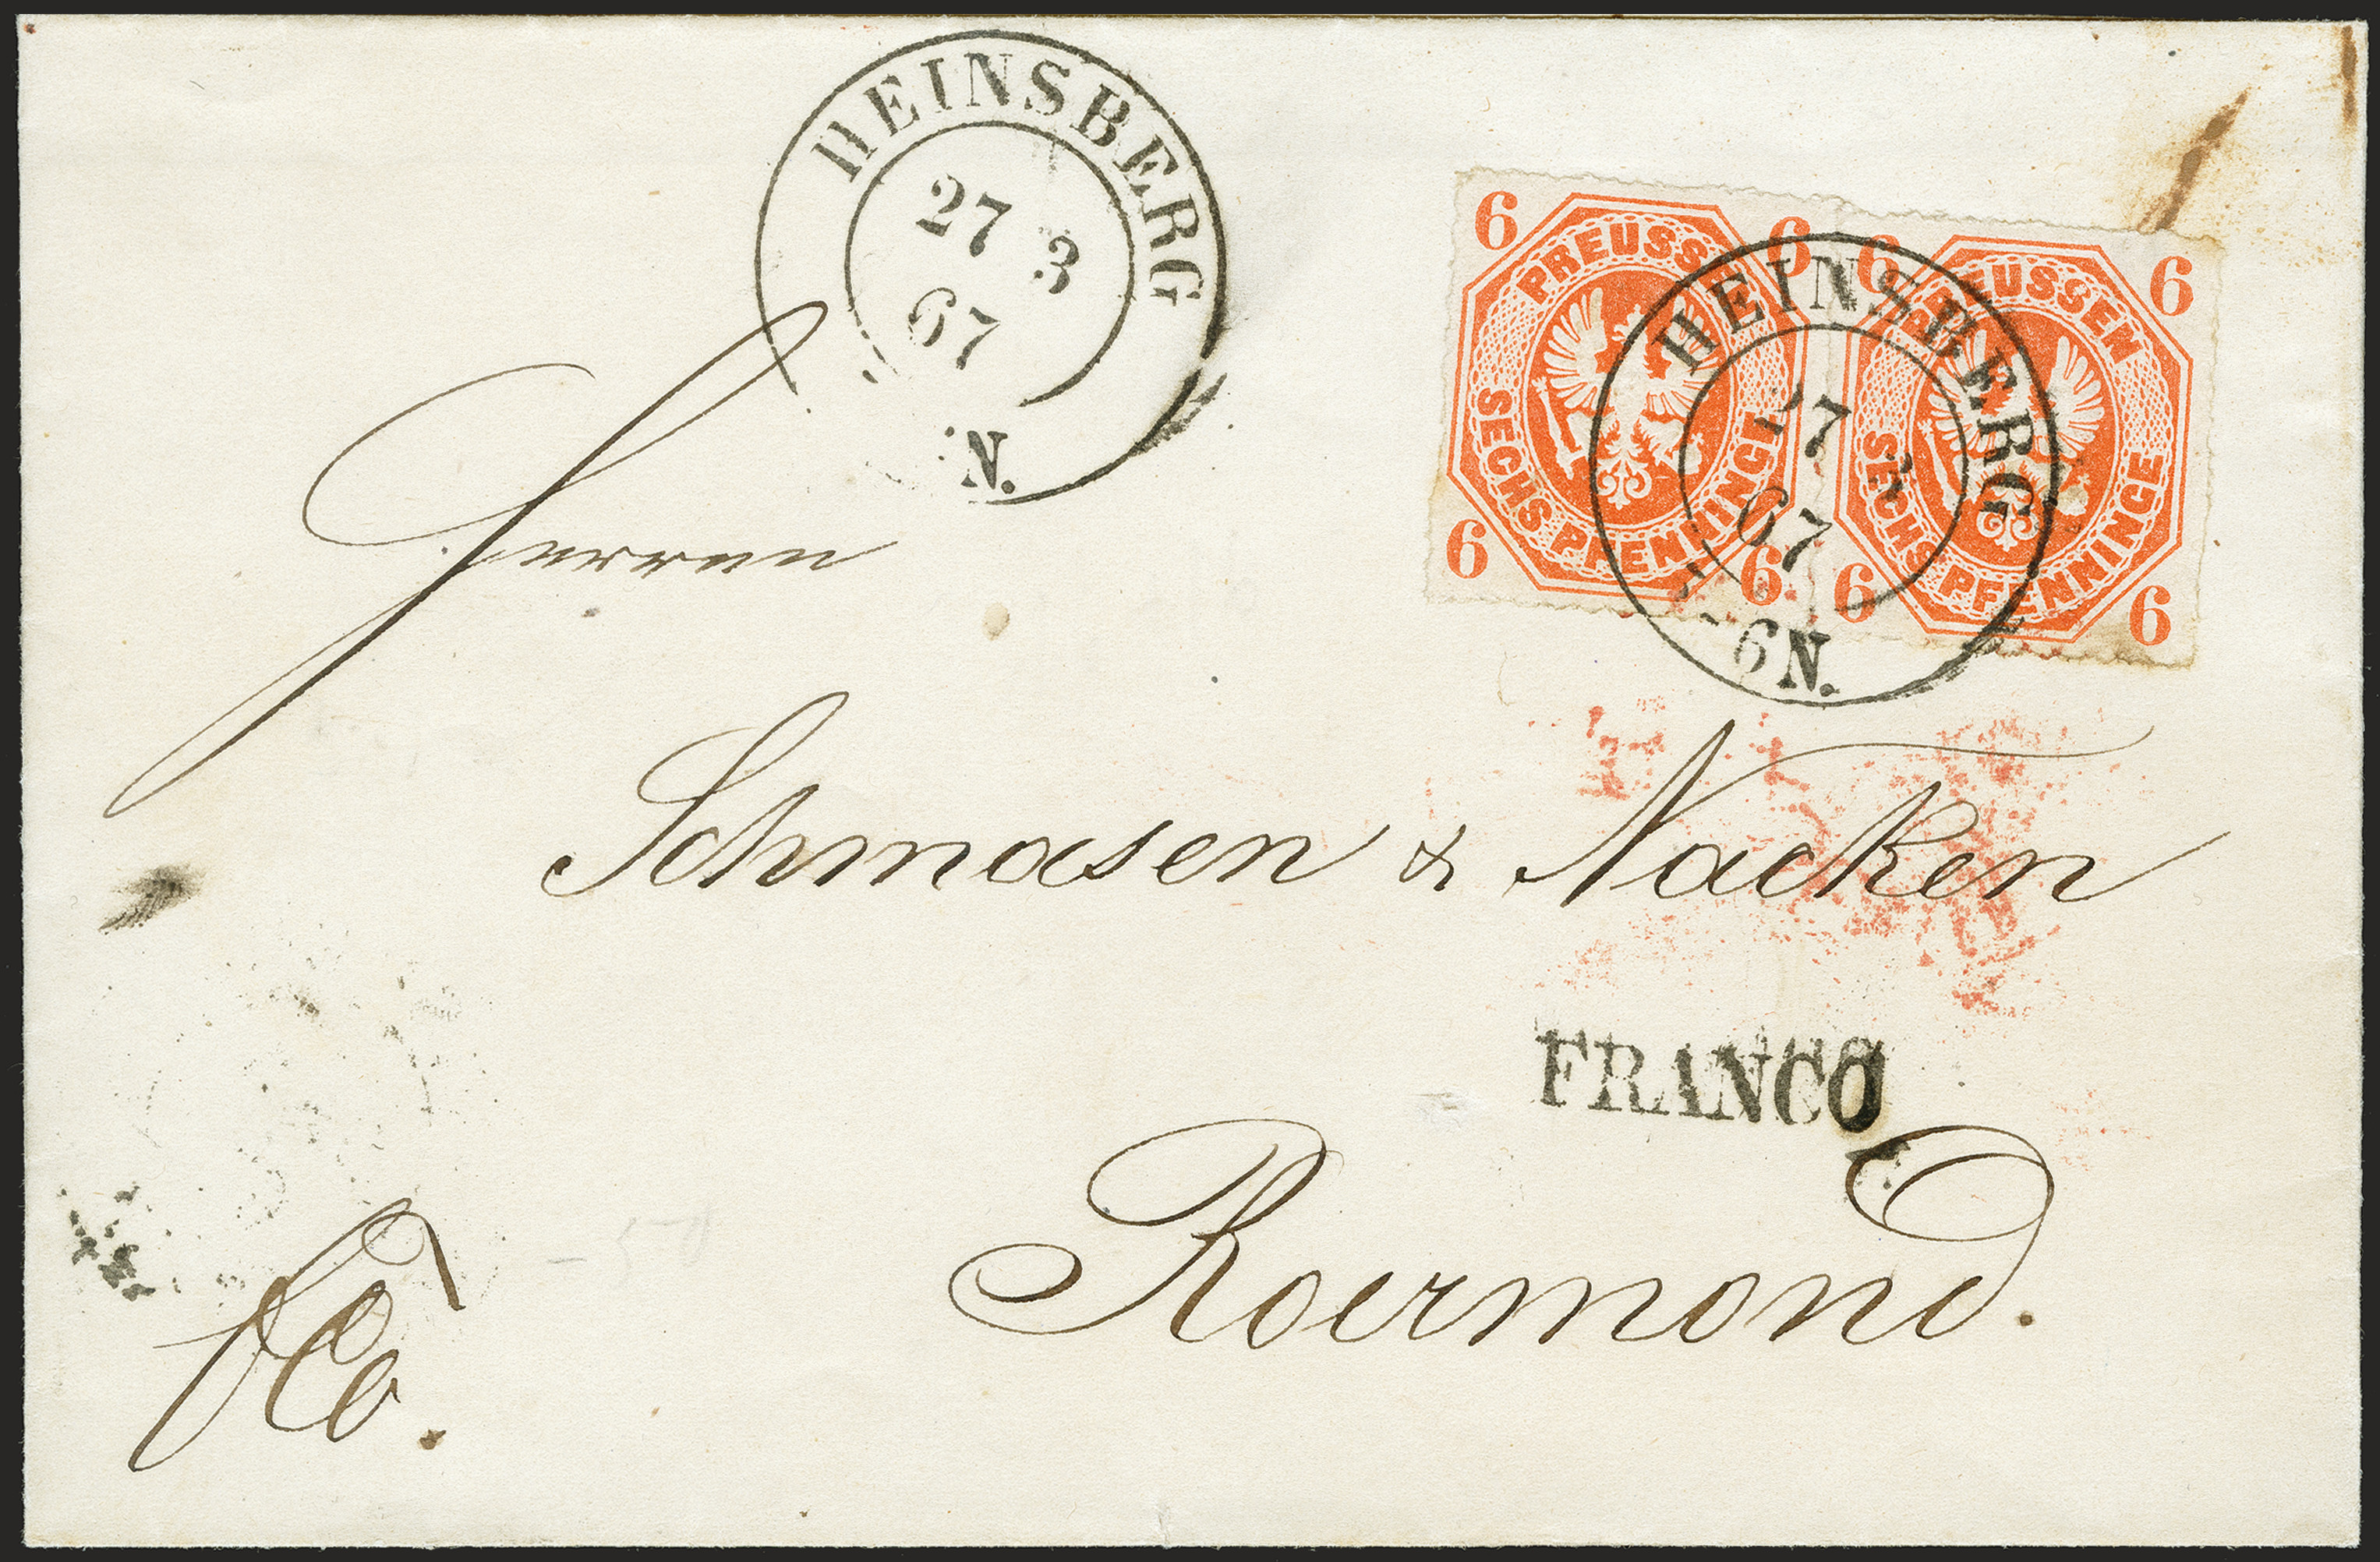 HEINSBERG
27 3
67
N.
6 6 6 6
PREUSSEN
SECHS PFENNINGE
6 6 6 6
PREUSSEN
SECHS PFENNINGE
HEINSBERG
27 3
67
-6N.
Herren
Schmasen & Nacken
FRANCO
Roermond.